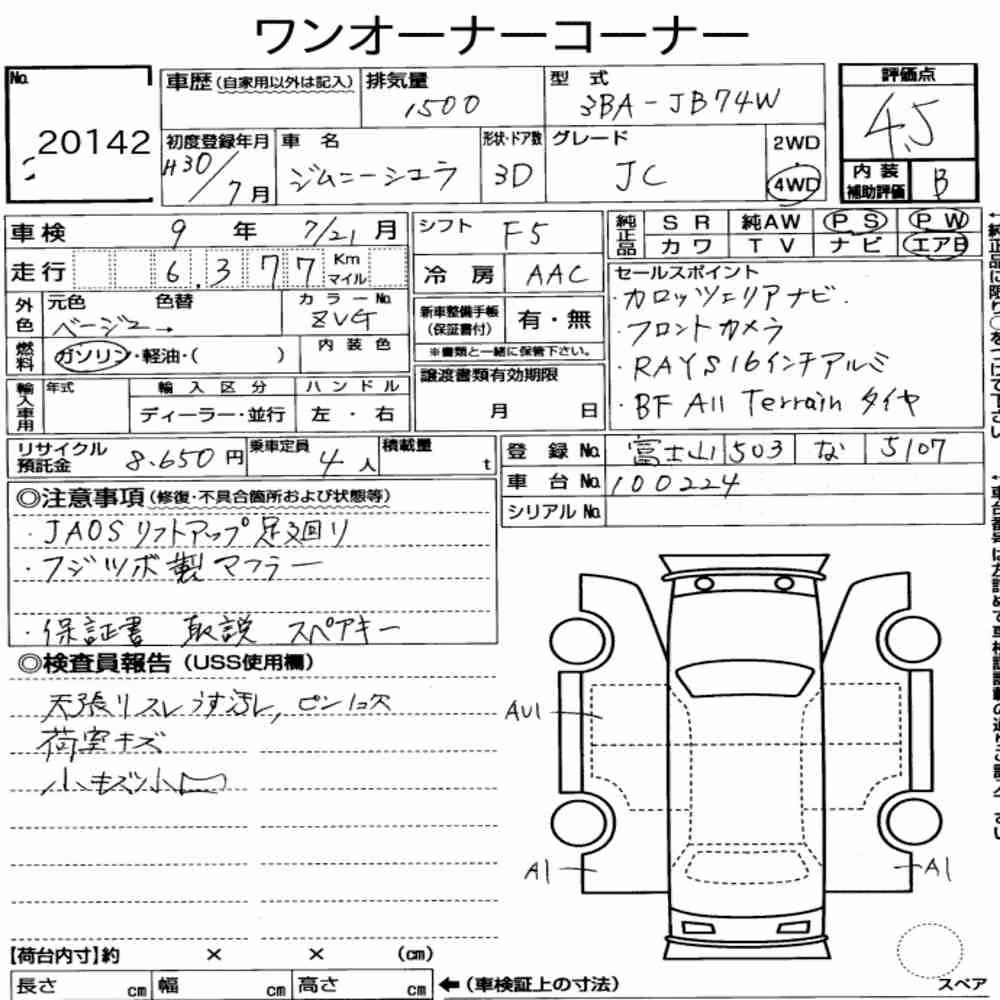 ワンオーナーコーナー
No. 20142
車歴(自家用以外は記入) 排気量 1500 型式 3BA-JB74W
評価点 4.5
初度登録年月 H30/7月 車名 ジムニーシエラ 形状・ドア数 3D グレード JC 2WD 4WD
内装補助評価 B
車検 9年 7/21月 シフト F5
純正品 SR 純AW PS PW
カワ TV ナビ エアB
走行 6.377 Km マイル 冷房 AAC
外色 元色 ベージュ→ 色替 カラーNo. ZVG
新車整備手帳(保証書付) 有・無
※書類と一緒に保管下さい。
セールスポイント
・カロッツェリアナビ.
・フロントカメラ
・RAYS16インチアルミ
・BF All Terrain タイヤ
燃料 ガソリン・軽油・( ) 内装色
譲渡書類有効期限 月 日
輸入車用 年式 輸入区分 ハンドル
ディーラー・並行 左・右
リサイクル預託金 8.650円 乗車定員 4人 積載量 t
登録No. 富士山 503 な 5107
車台No. 100224
シリアルNo.
◎注意事項(修復・不具合箇所および状態等)
・JAOSリフトアップ足廻り
・フジツボ製マフラー
・保証書 取説 スペアキー
◎検査員報告(USS使用欄)
天張リスレうす汚レ,ピン欠
荷室キズ
小キズ小凹
AU1
A1
A1
【荷台内寸】約 × × (cm)
長さ cm 幅 cm 高さ cm ←(車検証上の寸法)
スペア